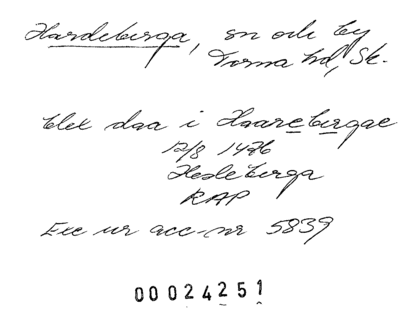 Hardeberga, sn och by
Torna hd, Sk.
blek daa i Haarebergae
12/8 1476
Hardeberga
RAP
Exc ur acc-nr 5839
00024251